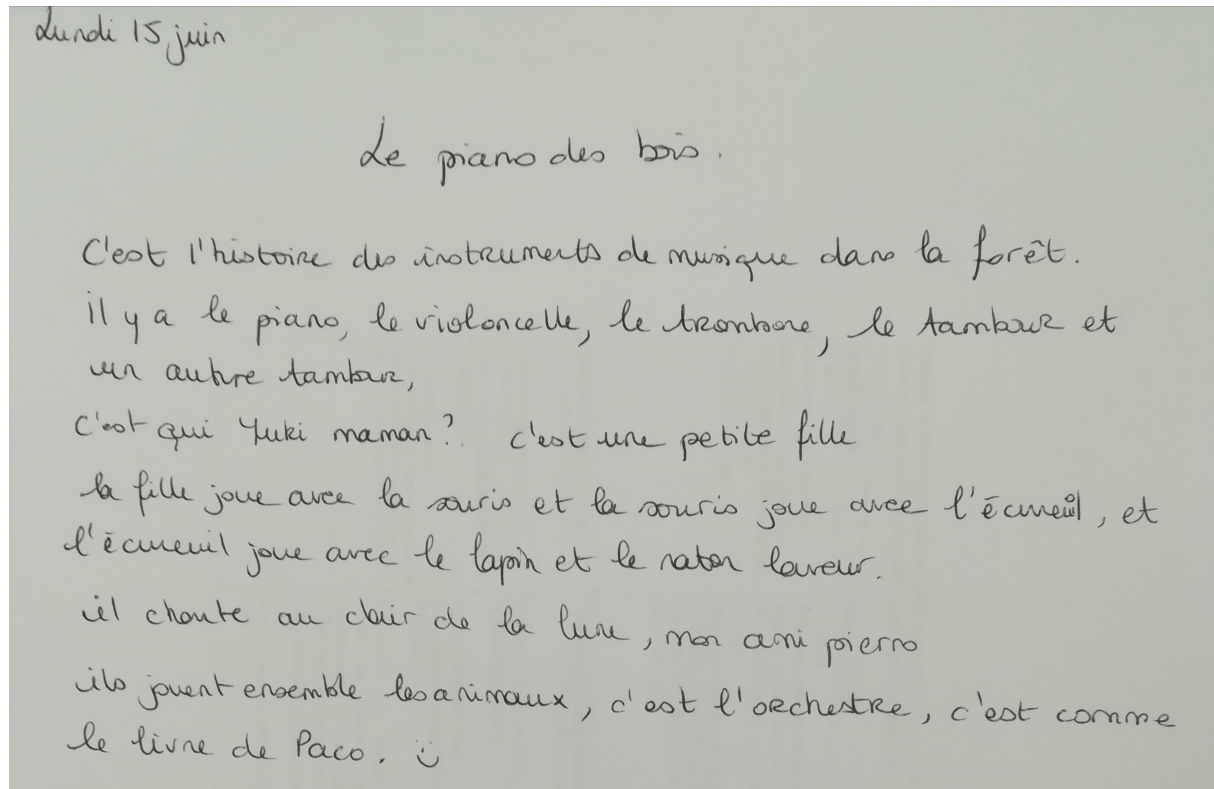 Lundi 15 juin
Le piano des bois.
C'est l'histoire des instruments de musique dans la forêt.
il y a le piano, le violoncelle, le trombone, le tambour et
un autre tambour,
c'est qui Yuki maman ? c'est une petite fille
la fille joue avec la souris et la souris joue avec l'écureuil, et
l'écureuil joue avec le lapin et le raton laveur.
il chante au clair de la lune, mon ami pierro
ils jouent ensemble les animaux, c'est l'orchestre, c'est comme
le livre de Paco. :)